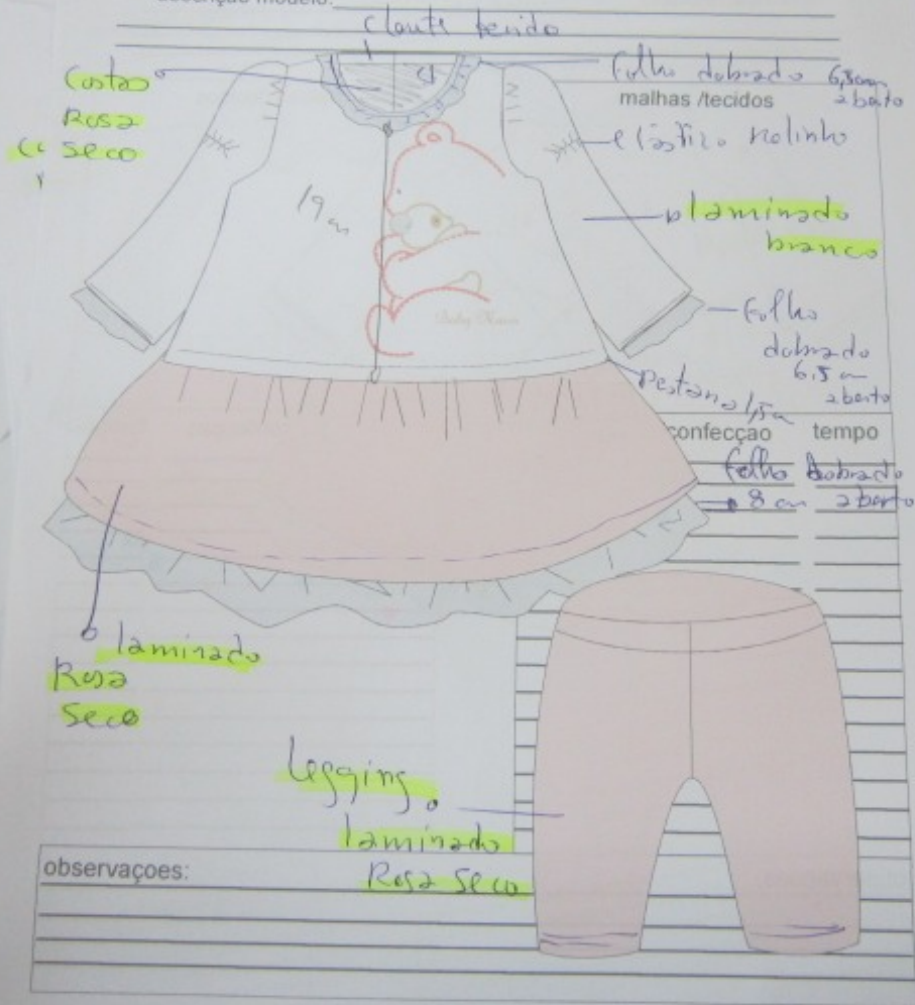 modelo:
tecido
Costas
Rosa
seco
folho dobrado 6,5cm
aberto
malhas /tecidos
elástico rolinho
laminado
branco
19 cm
Folho
dobrado
6,5 cm
aberto
Pestana 1,5cm
confecção tempo
folho dobrado
8 cm aberto
laminado
Rosa
Seco
Legging
laminado
Rosa Seco
observaçoes: